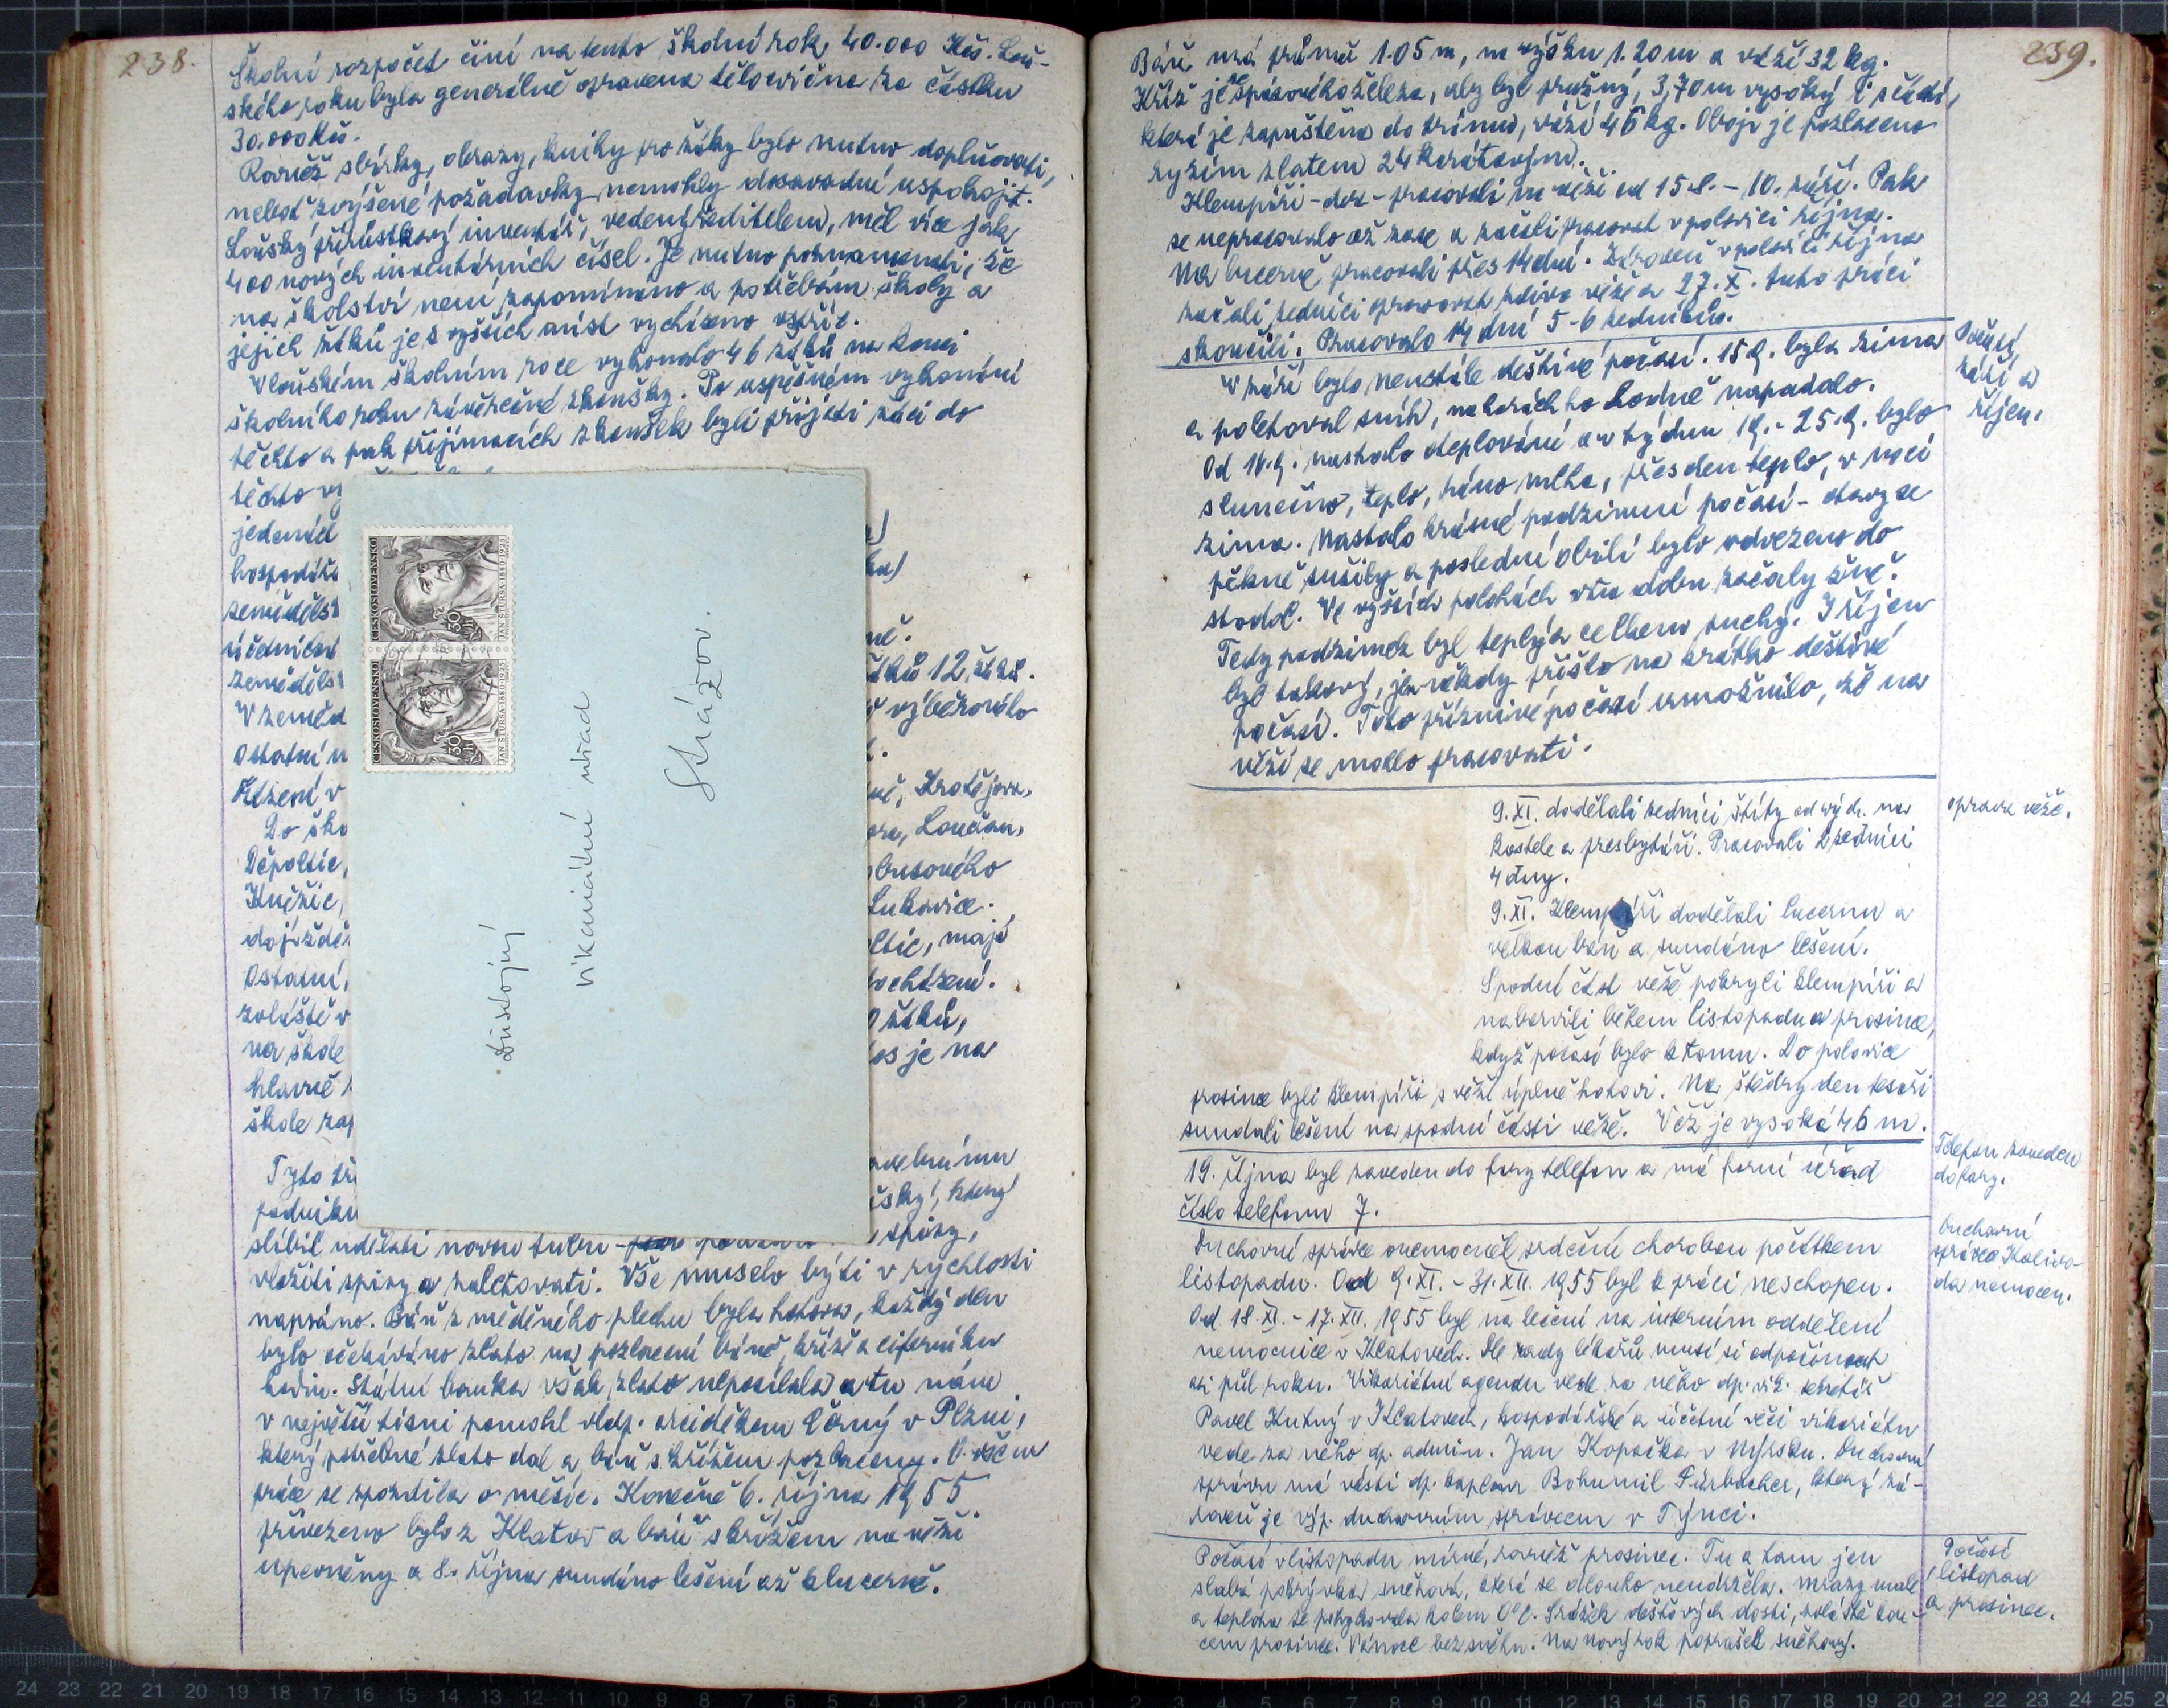 238.
Školní rozpočet činí na tento školní rok 40.000 Kčs. Loň-
ského roku byla generálně opravena tělocvična za částku
30.000 Kčs.
Rovněž sbírky, obrazy, knihy pro žáky bylo nutno doplňovati,
neboť zvýšené požadavky nemohly dosavadní uspokojit.
Loňský přírůstkový inventář, vedený ředitelem, měl více jak
400 nových inventárních čísel. Je nutno poznamenati, že
na školství není zapomínáno a potřebám školy a
jejich žáků je z vyšších míst vycházeno vstříc.
V loňském školním roce vykonalo 46 žáků na konci
školního roku závěrečné zkoušky. Po úspěšném vykonání
těchto a pak přijímacích zkoušek byli přijati žáci do
těchto
jedenáct
hospodářs
zeměděls
účednické
zeměděls
V zeměd
Ostatní
Řízení v
Do ško
Děpoltic,
Kněžic,
dojíždě
Ostatní,
zvláště v
na škole
hlavně
škole
žáků 12 žáků.
výběžovalo
Hrotějova,
Loučan,
busového
Lukavice.
oltic, mají
docházení.
žáků,
je na
Tyto
podniku
který
slíbil udělati novou spiny,
vložiti spiny a zaletovati. Vše muselo býti v rychlosti
napsáno. Báň z měděného plechu byla hotova, každý den
bylo očekáváno zlato na pozlacení báně, kříže a ciferníku
hodin. Státní banka však zlato neposílala a tu nám
v největší tísni pomohl vldp. arciděkan Černý v Plzni,
který potřebné zlato dal a báň s křížem pozlaceny. O všem
práce se zpozdila o měsíc. Konečně 6. října 1955
přivezeno bylo z Klatov a báň s křížem na věži
upevněny a 8. října sundáno lešení až k lucerně.
ČESKOSLOVENSKO
30 h
JAN ŠTURSA 1880-1925
ČESKOSLOVENSKO
30 h
JAN ŠTURSA 1880-1925
Důstojný
vikariátní úřad
Strážov.
239.
Báň má průměr 1.05 m, m výšku 1.20 m a váží 32 kg.
Kříž je ze spásového železa, aby byl pružný, 3,70 m vysoký i s částí,
která je zapuštěna do trámu, váží 46 kg. Obojí je pozlaceno
ryzím zlatem 24 karátovým.
Klempíři - dva - pracovali na věži od 15.8. - 10. září. Pak
se nepracovalo až zase a začali pracovat v polovici října.
Na lucerně pracovali přes 14 dní. Zároveň v polovici října
začali zedníci opravovat zdivo věže a 27. X. tuto práci
skončili. Pracovalo 14 dní 5-6 zedníků.
V září bylo neustále deštivé počasí. 15.9. byla zima
a poletoval sníh, na horách ho hodně napadalo.
Od 16.9. nastalo oteplování a v týdnu 19. - 25.9. bylo
slunečno, teplo, ráno mlha, přes den teplo, v noci
zima. Nastalo krásné podzimní počasí - otavy se
pěkně sušily a poslední obilí bylo odvezeno do
stodol. Ve vyšších polohách v tu dobu začaly žně.
Tedy podzimek byl teplý a celkem suchý. I říjen
byl takový, jen někdy přišlo na krátko deštivé
počasí. Toto příznivé počasí umožnilo, že na
věži se mohlo pracovati.
Počasí
září a
říjen.
9. XI. dodělali zedníci štíty od vých. na
kostele a presbytáři. Pracovali 2 zedníci
4 dny.
9. XI. Klempíři dodělali lucernu a
velkou báň a sundáno lešení.
Spodní část věže pokryli klempíři a
nabarvili během listopadu a prosince,
když počasí bylo k tomu. Do polovice
prosince byli klempíři s věží úplně hotovi. Na štědrý den tesaři
sundali lešení na spodní části věže. Věž je vysoká 46 m.
oprava věže.
19. října byl zaveden do fary telefon a má farní úřad
číslo telefonu 7.
Telefon zaveden
do fary.
Duchovní správce onemocněl srdeční chorobou počátkem
listopadu. Od 9. XI. - 31. XII. 1955 byl k práci neschopen.
Od 18. XI. - 17. XII. 1955 byl na léčení na interním oddělení
nemocnice v Klatovech. Dle rady lékařů musí si odpočinout
asi půl roku. Vikariátní agendu vede za něho dp. vik. sekretář
Pavel Kutný v Klatovech, hospodářské a účetní věci vikariátu
vede za něho dp. admin. Jan Kopačka v Nýrsku. Duchovní
správu má vésti dp. kaplan Bohumil Fürbacher, který zá-
roveň je výp. duchovním správcem v Týnci.
Duchovní
správce Kalivo-
da nemocen.
Počasí v listopadu mírné, rovněž prosinec. Tu a tam jen
slabá pokrývka sněhová, která se dlouho neudržela. Mrazy malé
a teplota se pohybovala kolem 0°C. Srážek dešťových dosti, zvláště kon-
cem prosince. Vánoce bez sněhu. Na Nový rok poprašek sněhový.
Počasí
listopad
a prosinec.